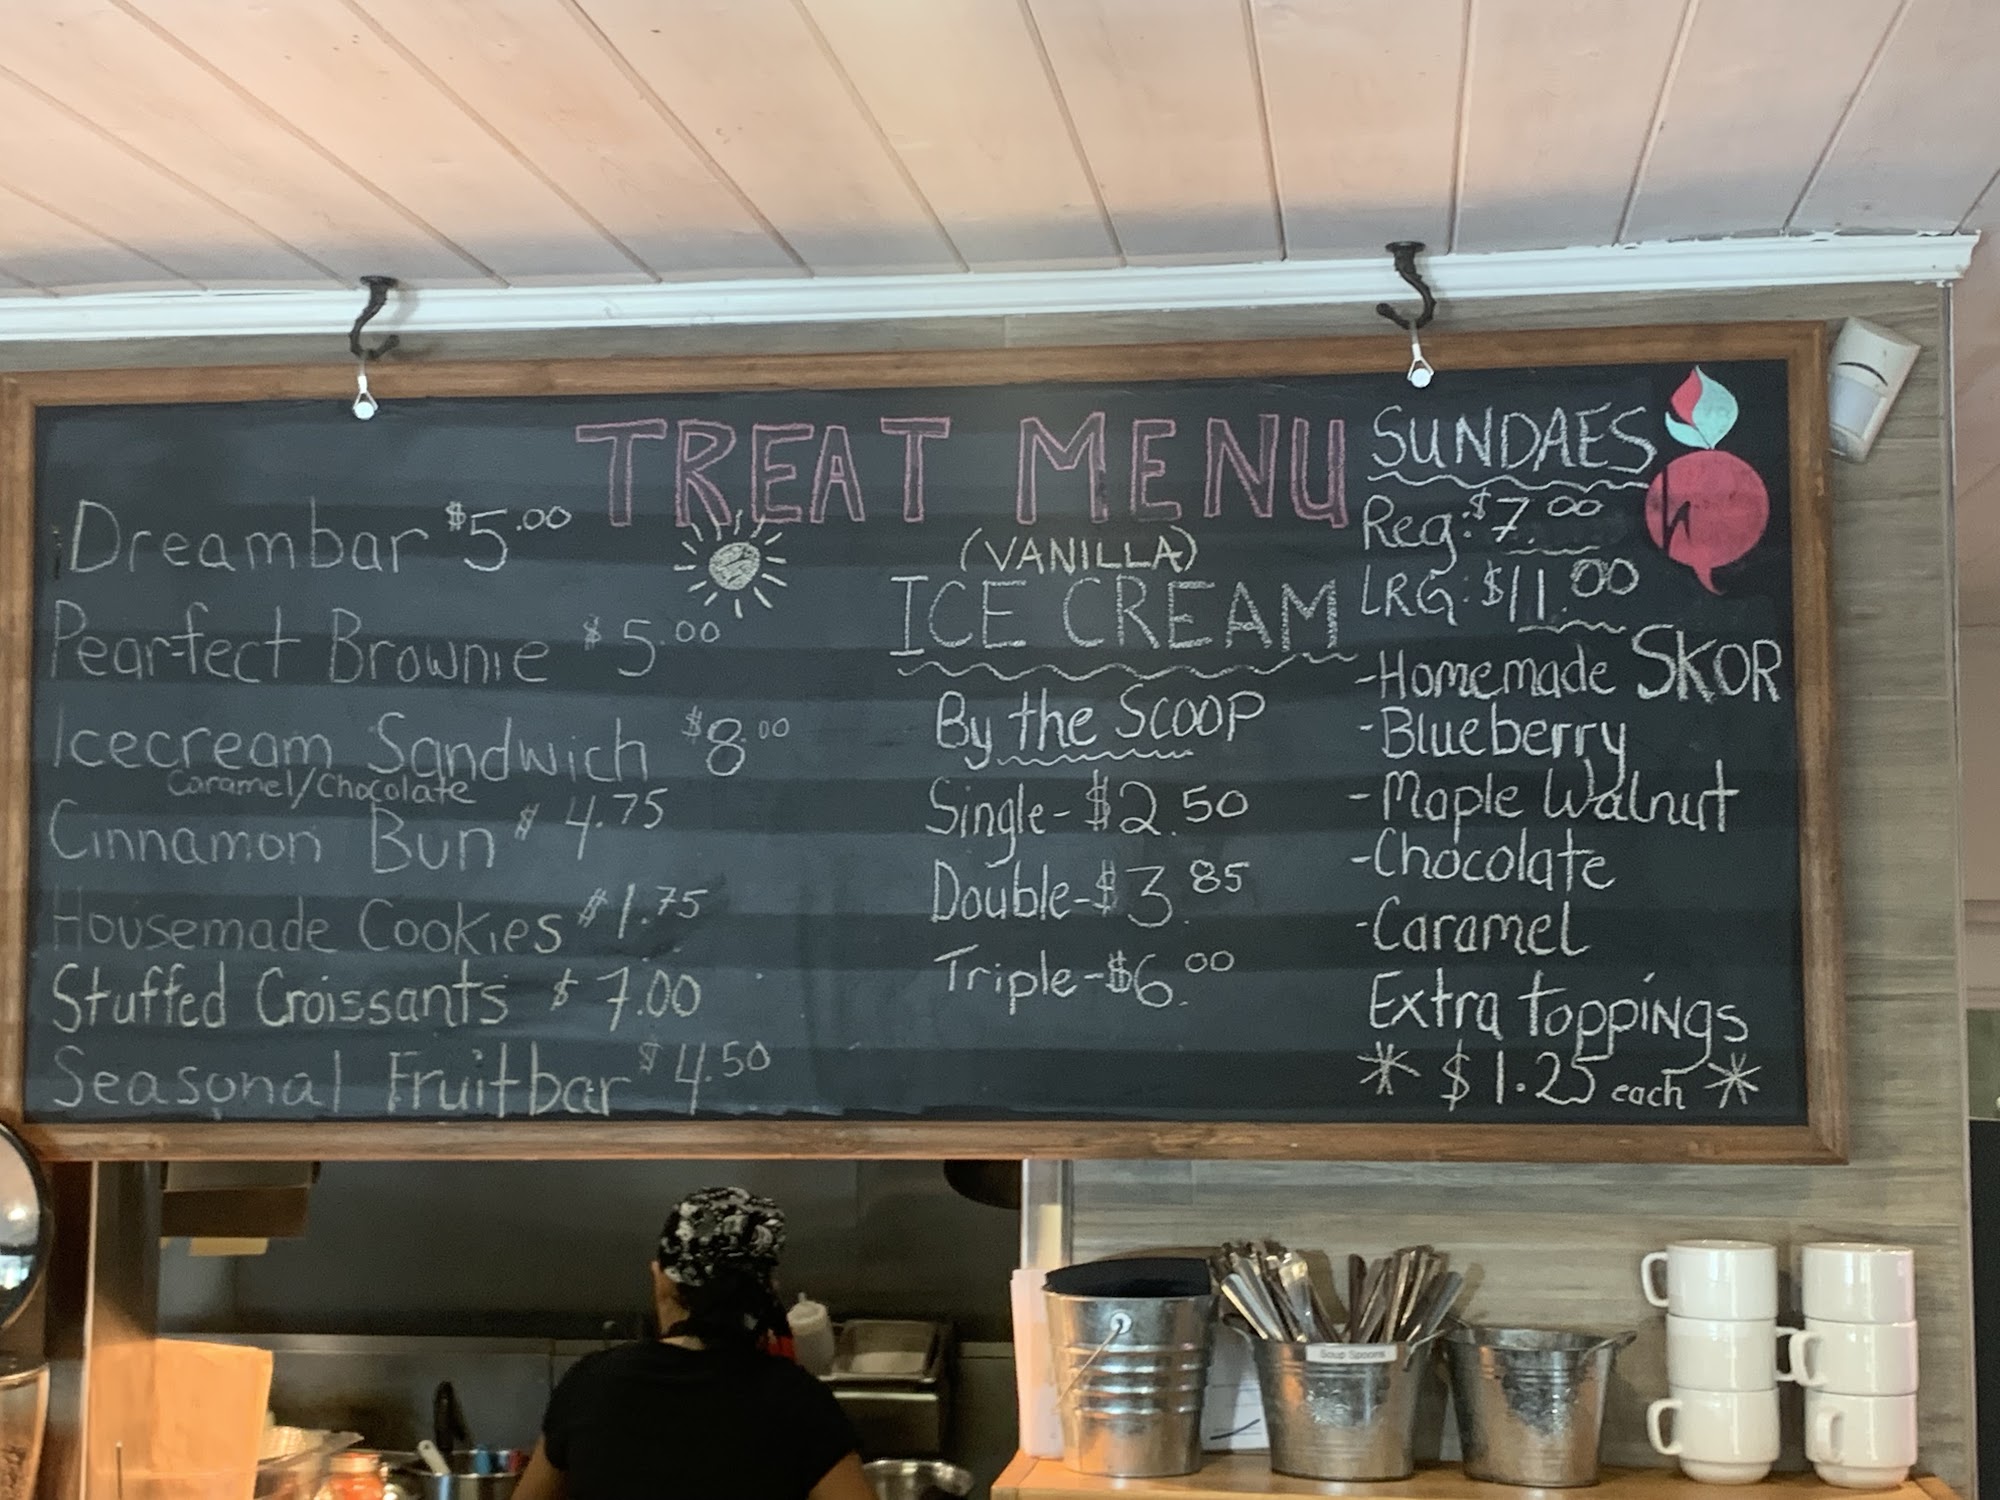 TREAT MENU
Dreambar $5.00
Pearfect Brownie $5.00
Icecream Sandwich $8.00
Caramel/Chocolate
Cinnamon Bun $4.75
Housemade Cookies $1.75
Stuffed Croissants $7.00
Seasonal Fruitbar $4.50
(VANILLA)
ICE CREAM
By the Scoop
Single-$2.50
Double-$3.85
Triple-$6.00
SUNDAES
Reg: $7.00
LRG: $11.00
-Homemade SKOR
-Blueberry
-Maple Walnut
-Chocolate
-Caramel
Extra toppings
* $1.25 each *
h
Soup Spoons